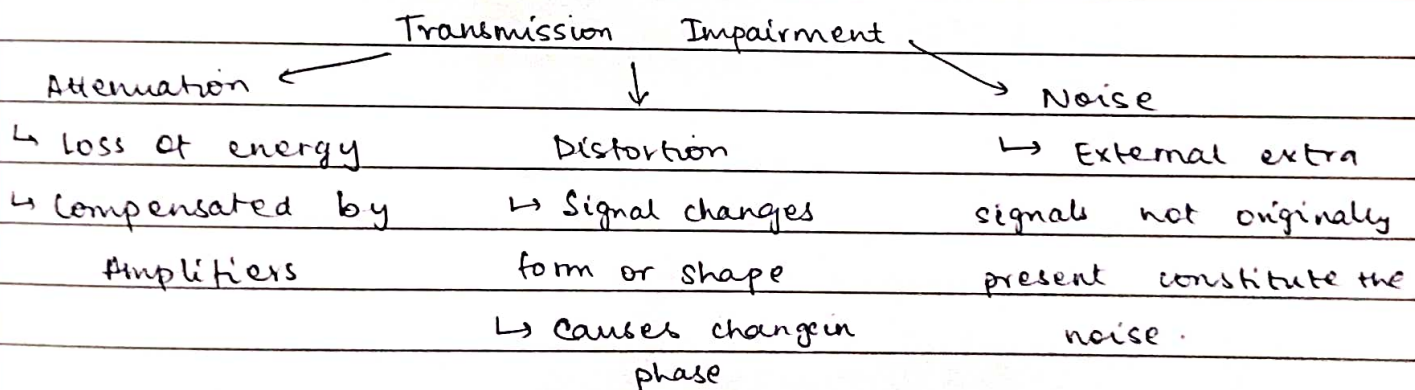 Transmission Impairment
Attenuation
↳ Loss of energy
↳ Compensated by
Amplifiers
Distortion
↳ Signal changes
form or shape
↳ causes changein
phase
Noise
↳ External extra
signals not originally
present constitute the
noise.